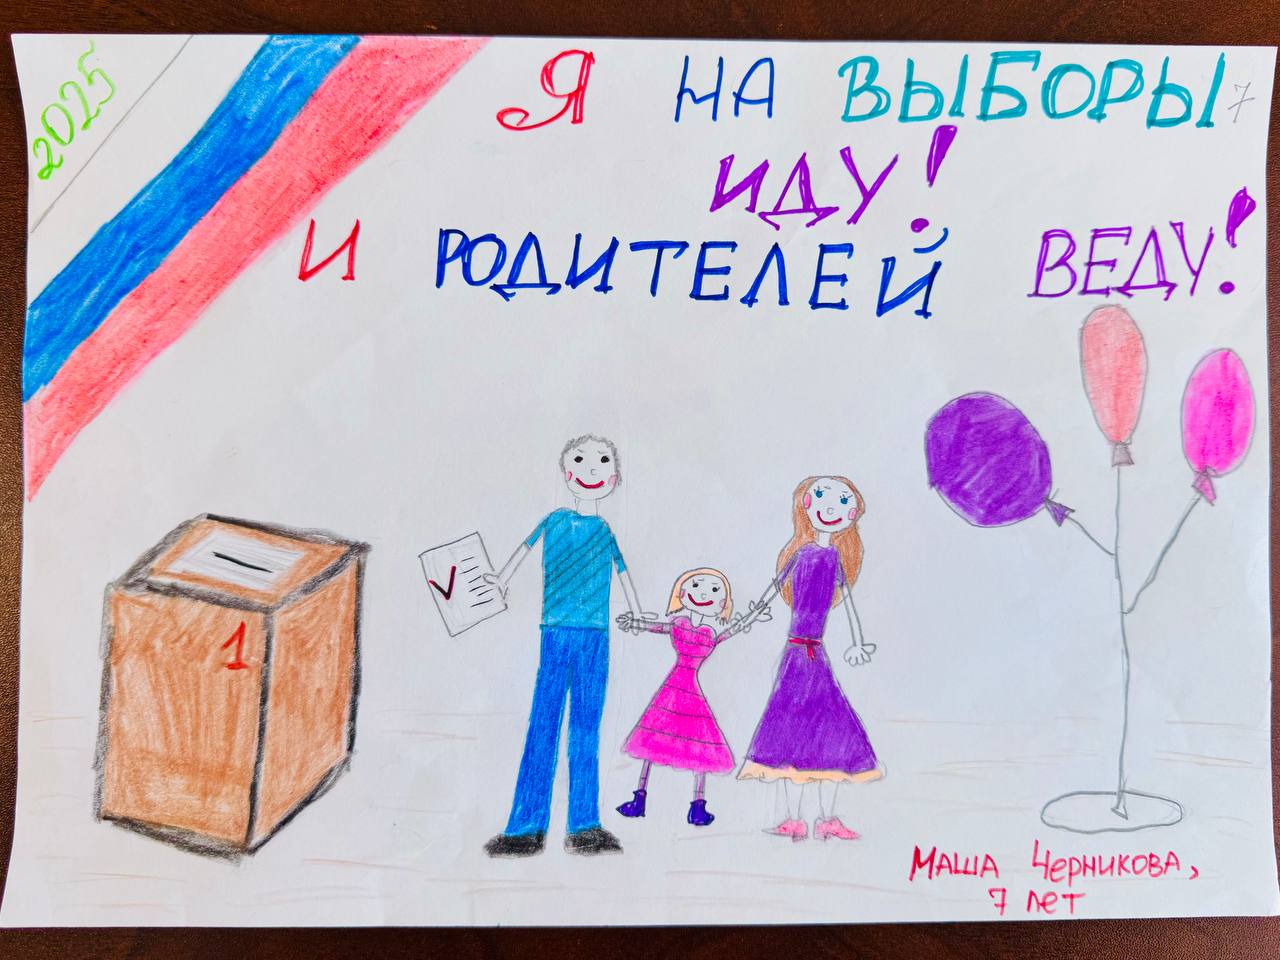 2025
Я НА ВЫБОРЫ 7
ИДУ!
И РОДИТЕЛЕЙ ВЕДУ!
1
МАША ЧЕРНИКОВА,
7 лет